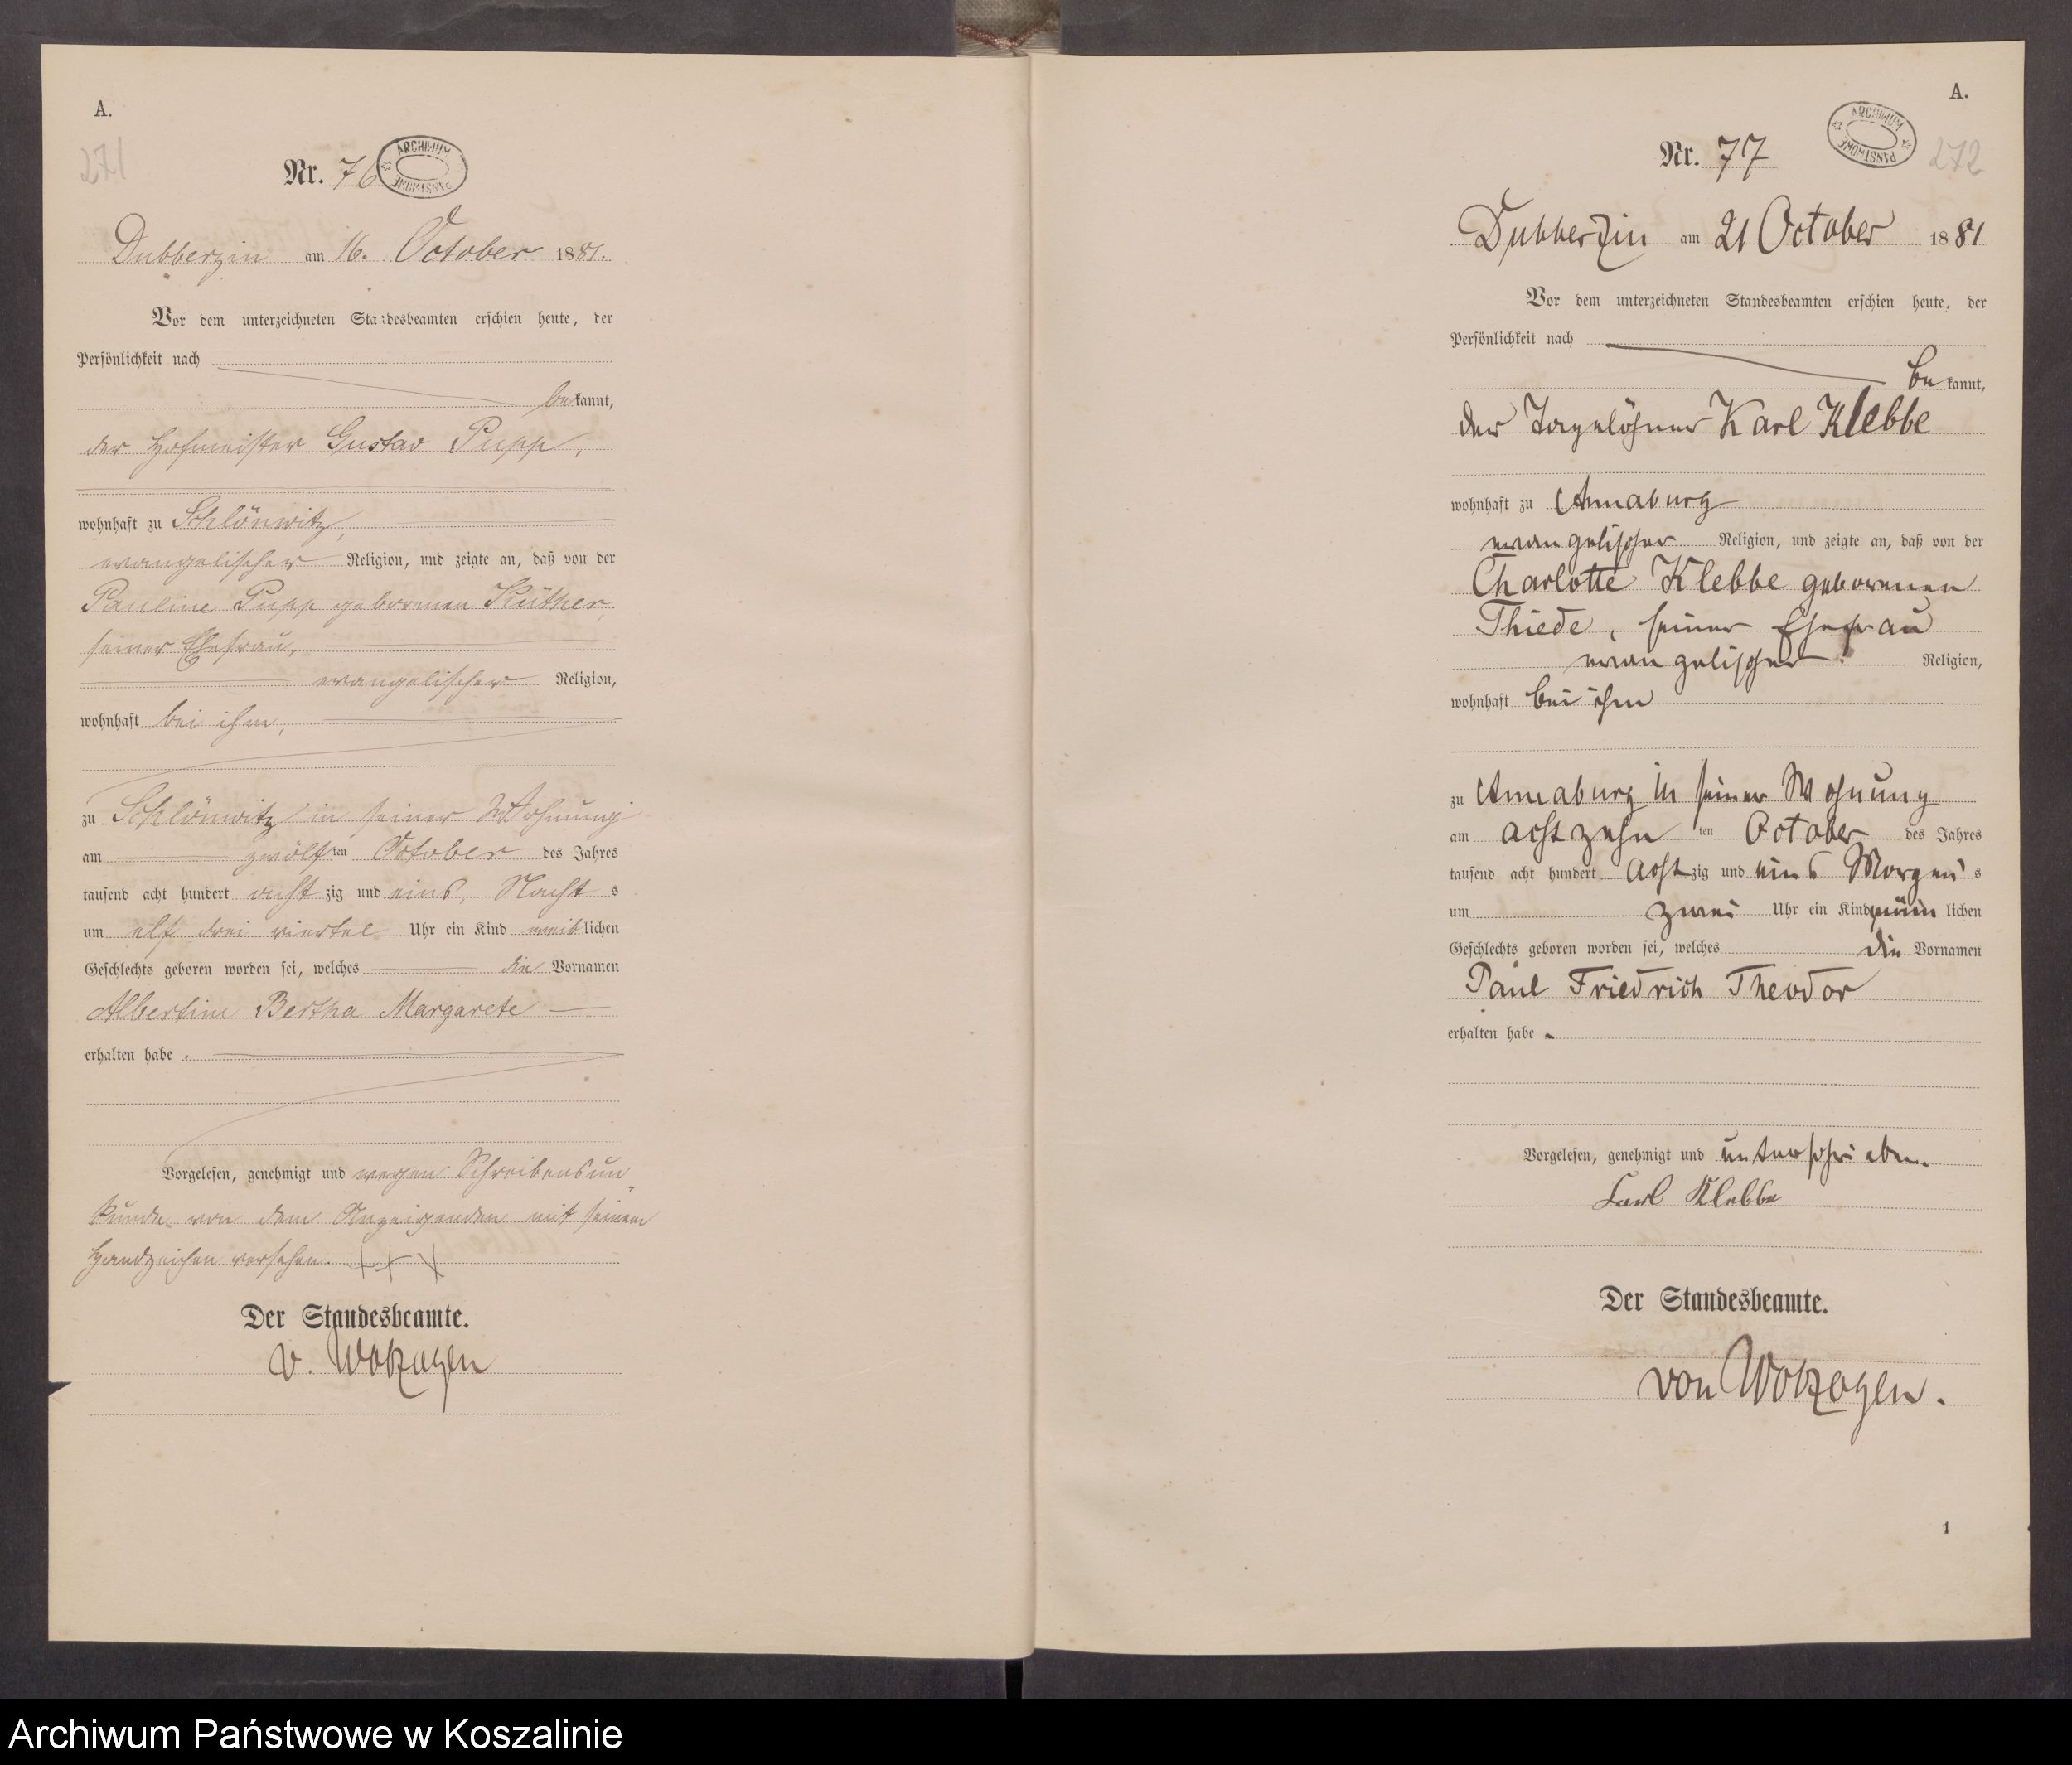 A.
271
Nr. 76
ARCHIWUM PAŃSTWOWE
Dubberzin am 16. October 1881.
Vor dem unterzeichneten Standesbeamten erschien heute, der
Persönlichkeit nach
bekannt,
der Hofmeister Gustav Pupp,
wohnhaft zu Schlönwitz,
evangelischer Religion, und zeigte an, daß von der
Pauline Pupp geborenen Küther,
seiner Ehefrau,
evangelischer Religion,
wohnhaft bei ihm,
zu Schlönwitz in seiner Wohnung
am zwölften October des Jahres
tausend acht hundert achtzig und eins, Nachts
um elf drei viertel Uhr ein Kind weiblichen
Geschlechts geboren worden sei, welches die Vornamen
Albertine Bertha Margarete
erhalten habe.
Vorgelesen, genehmigt und wegen Schreibensun
kunde von dem Anzeigenden mit seinem
Handzeichen versehen. + + +
Der Standesbeamte.
v. Wolzogen
A.
272
Nr. 77
ARCHIWUM PAŃSTWOWE
Dubberzin am 21 October 1881
Vor dem unterzeichneten Standesbeamten erschien heute, der
Persönlichkeit nach
bekannt,
der Tagelöhner Karl Klebbe
wohnhaft zu Annaburg
evangelischer Religion, und zeigte an, daß von der
Charlotte Klebbe geborenen
Thiede, seiner Ehefrau
evangelischer Religion,
wohnhaft bei ihm
zu Annaburg in seiner Wohnung
am achtzehnten October des Jahres
tausend acht hundert achtzig und eins Morgens
um zwei Uhr ein Kind männlichen
Geschlechts geboren worden sei, welches die Vornamen
Paul Friedrich Theodor
erhalten habe.
Vorgelesen, genehmigt und unterschrieben.
Karl Klebbe
Der Standesbeamte.
von Wolzogen.
1
Archiwum Państwowe w Koszalinie